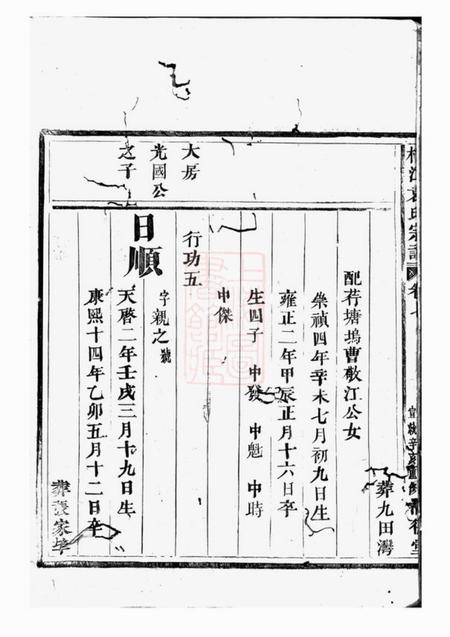 氏宗譜 卷七
配荇塘塢曹敬江公女 葬九田灣
崇禎四年辛未七月初九日生
雍正二年甲辰正月十六日卒
生四子 中發 中魁 中時
中傑
大房
光國公
之子
行功五
日順
字親之號
天啓二年壬戌三月十九日生
康熙十四年乙卯五月十二日卒
葬張家